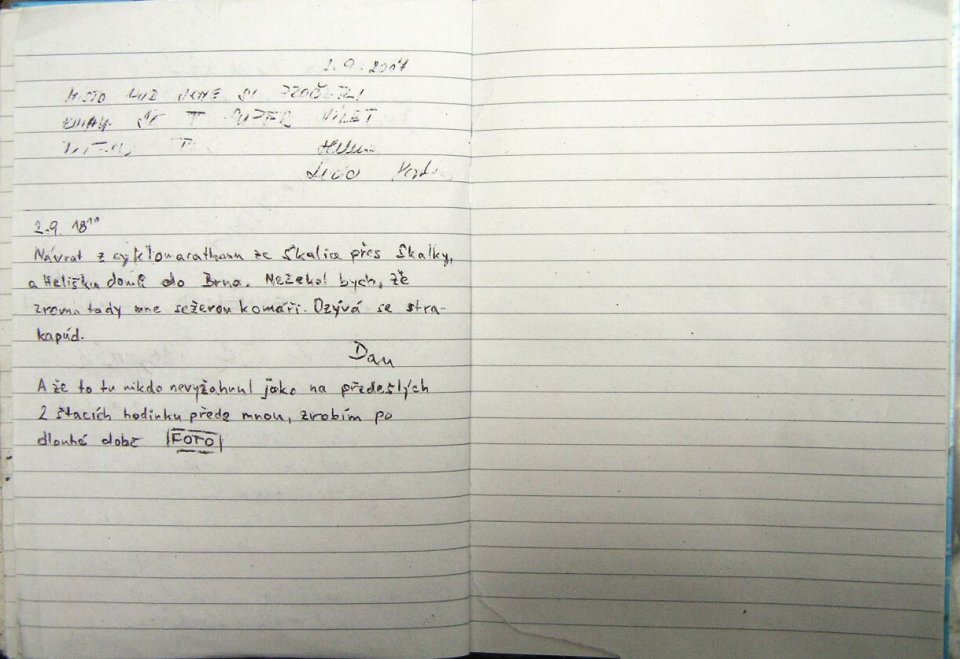 2.9.2017
MÍSTO KDE JSME SI
SUPER VÝLET
Helena
2.9 18¹⁰
Návrat z cyklomarathonu ze Skalice přes Skalky,
a Heliškou domů do Brna. Neřekl bych, že
zrovna tady mne sežerou komáři. Ozývá se stra-
kapúd.
Dan
A že to tu nikdo nevyžahnul jako na předešlých
2 štacích hodinku přede mnou, zrobím po
dlouhé době FOTO